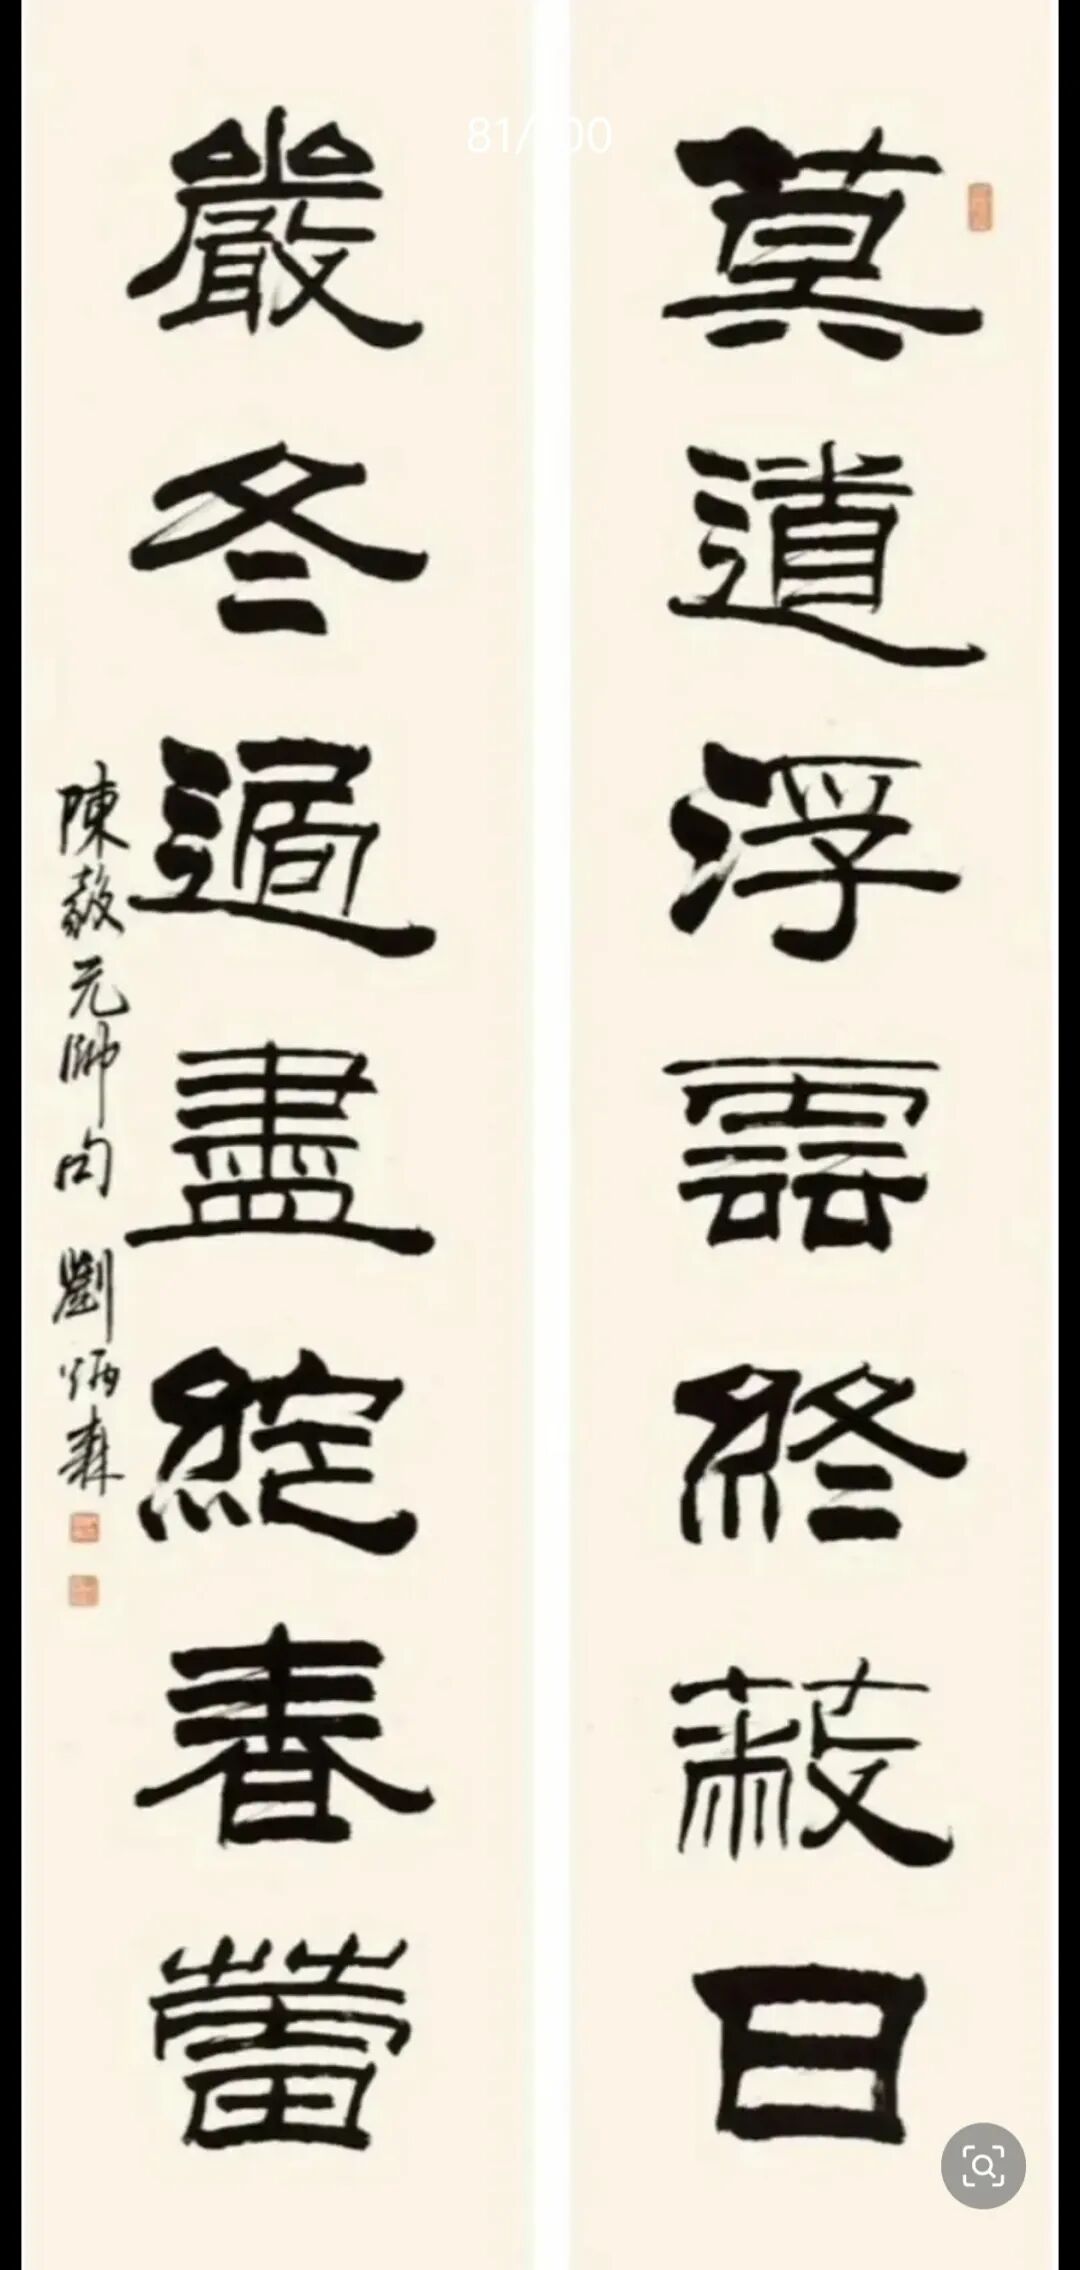 莫道浮雲終蔽日
嚴冬過盡綻春蕾
陳毅元帥句 劉炳森